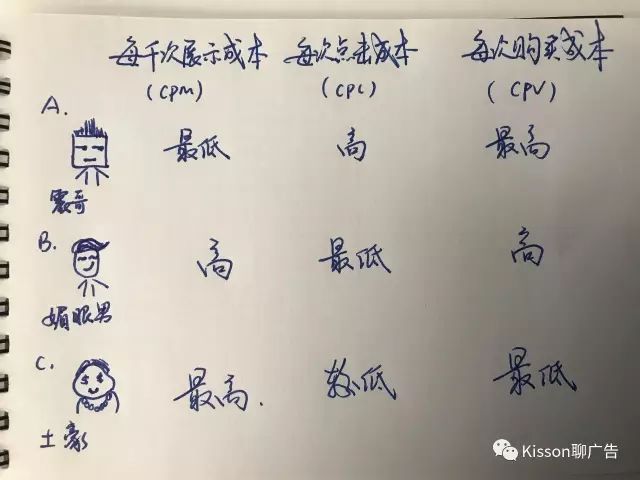 每千次展示成本 每次点击成本 每次购买成本
(CPM) (CPC) (CPV)
A.
最低 高 最高
震哥
B.
高 最低 高
媚眼男
C.
最高. 较低 最低
土豪
Kisson聊广告